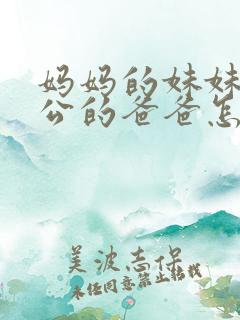 妈妈的妹妹
公的爸爸怎
美波志保
未经同意禁止转载